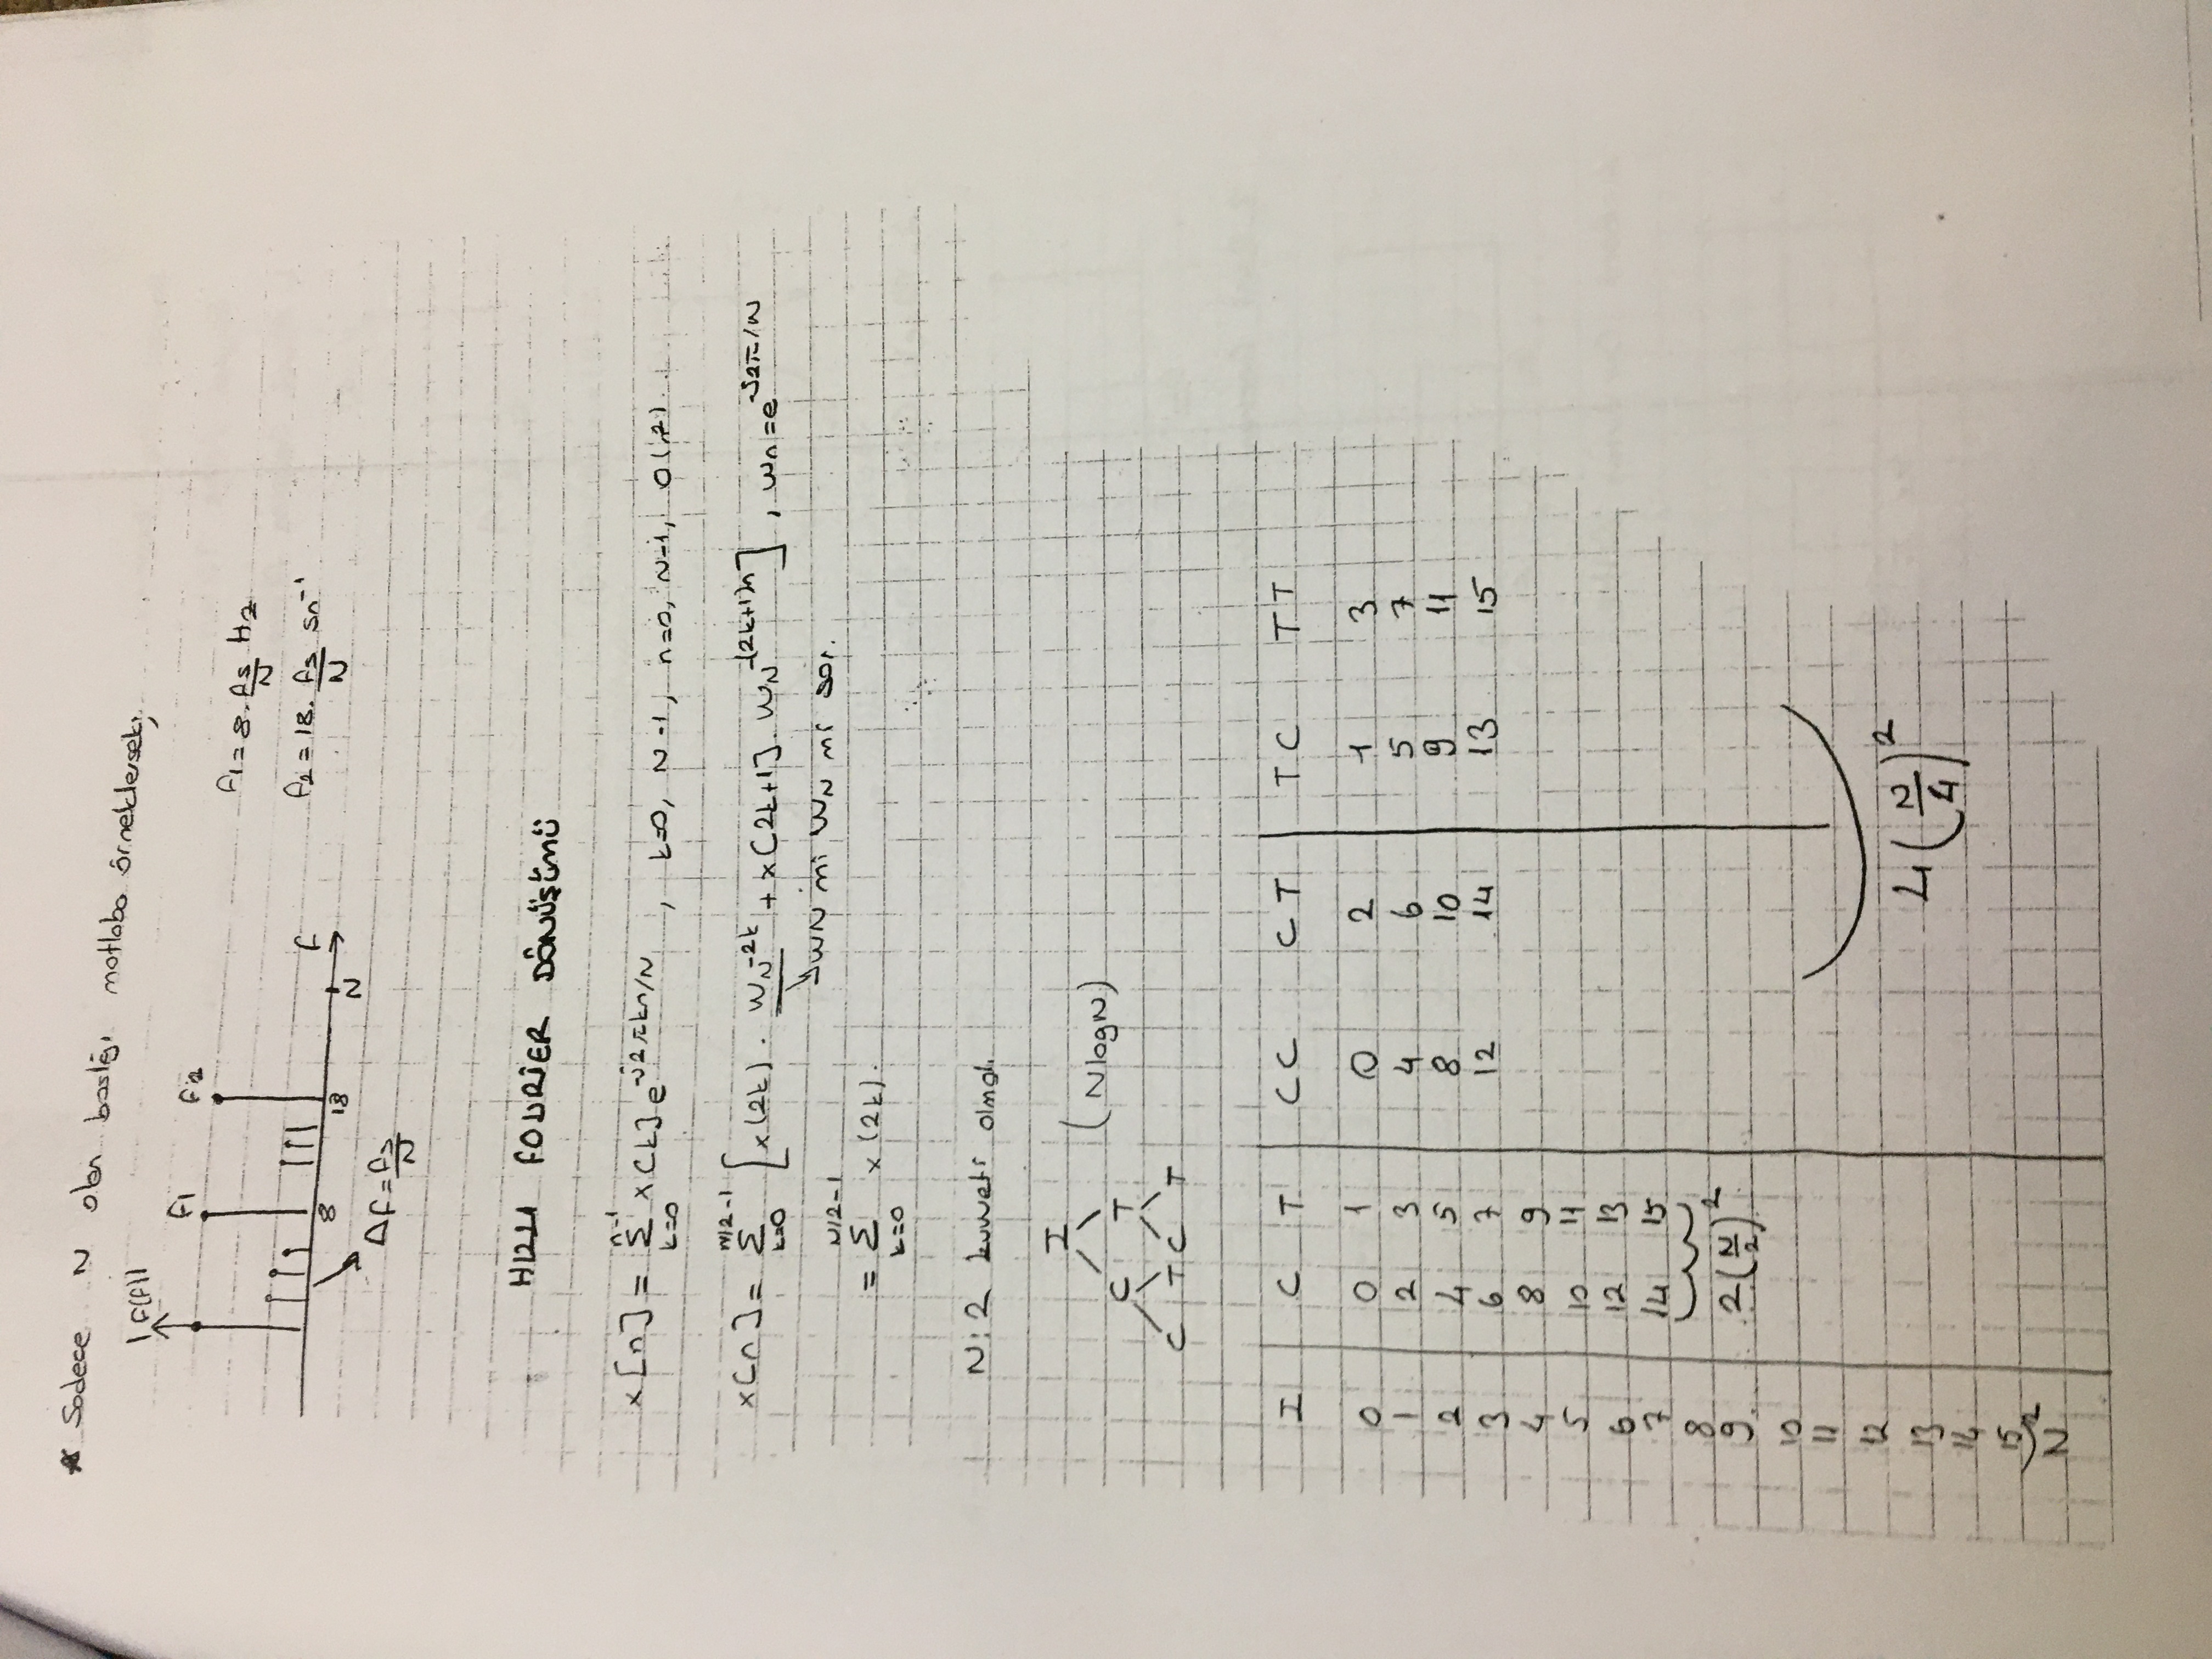 * Sadece N olan başlığı matlaba örneklersek;
|F(f)|
F1
F2
8
18
N
f
Δf = fs/N
f1 = 8. fs/N Hz
f2 = 18. fs/N sn⁻¹
HIZLI FOURİER DÖNÜŞÜMÜ
x[n] = Σ_{k=0}^{n-1} x[k] e^{-j2πkn/N} , k=0, N-1, n=0, N-1, O(n²).
x[n] = Σ_{k=0}^{N/2-1} [x(2k) . W_N^{-2k} + x[2k+1]. W_N^{-(2k+1)n}] , wn = e^{-j2π/N}
WN mi W_N mi sor.
= Σ_{k=0}^{N/2-1} x(2k).
N: 2 kuvveti olmalı.
I
C T (NlogN)
C T C T
I C T CC CT TC TT
0 0 1 0 2 1 3
1 2 3 4 6 5 7
2 4 5 8 10 9 11
3 6 7 12 14 13 15
4 8 9
5 10 11
6 12 13
7 14 15
8
9 2(N/2)²
10
11
12
13 4(N/4)²
14
15
N²